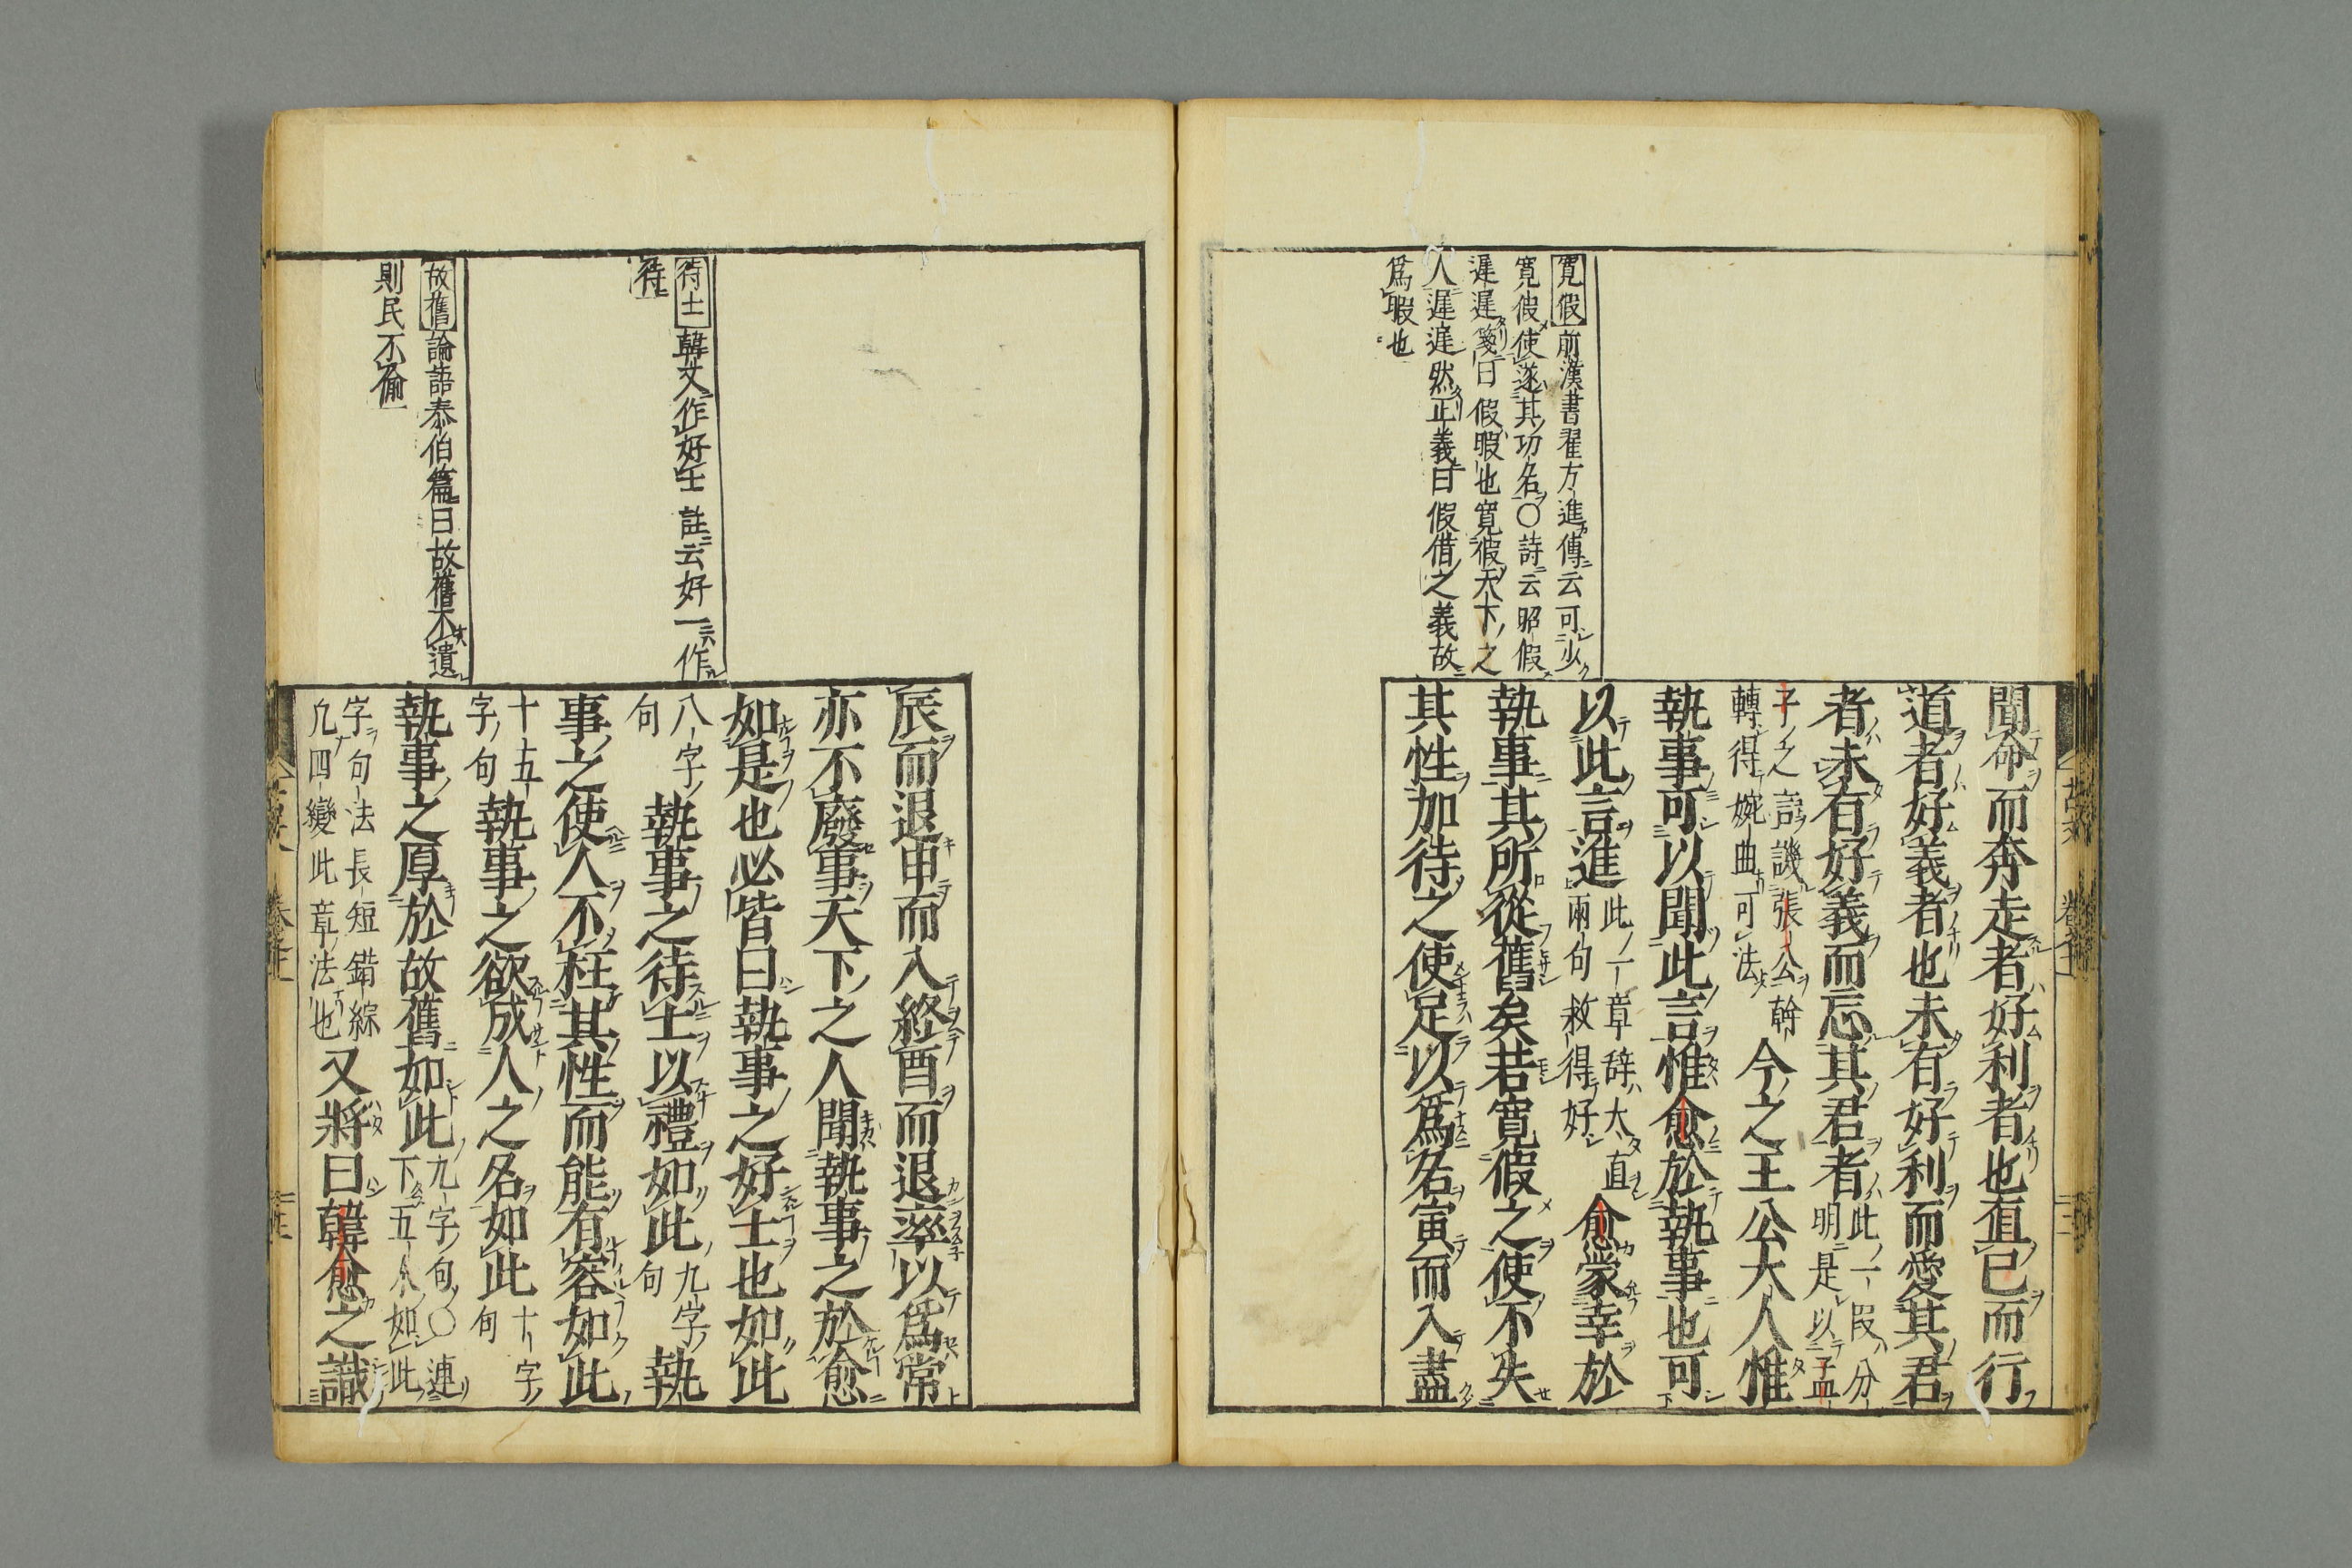 寬假前漢書翟方進傳云可少
寬假使遂其功名〇詩云昭假
遲遲箋曰假暇也寬假天下之
人遲遲然正義曰假借之義故
爲暇也
聞命而奔走者好利者也直己而行
道者好義者也未有好利而愛其君
者未有好義而忘其君者此一段分明是以孟
子之言譏張公幹轉得婉曲可法今之王公大人惟
執事可以聞此言惟愈於執事也可
以此言進此一章辞大直兩句救得好愈蒙幸於
執事其所從舊矣若寬假之使不失
其性加待之使足以爲名寅而入盡
待士韓文作好士註云好一作
待
故舊論語泰伯篇曰故舊不遺
則民不偷
辰而退申而入終酉而退率以爲常
亦不廢事天下之人聞執事之於愈
如是也必皆曰執事之好士也如此
八字句執事之待士以禮如此九字句執
事之使人不枉其性而能有容如此
十五字句執事之欲成人之名如此十字句
執事之厚於故舊如此九字句〇連下五个如此
字句法長短錯綜凡四變此章法也又將曰韓愈之識